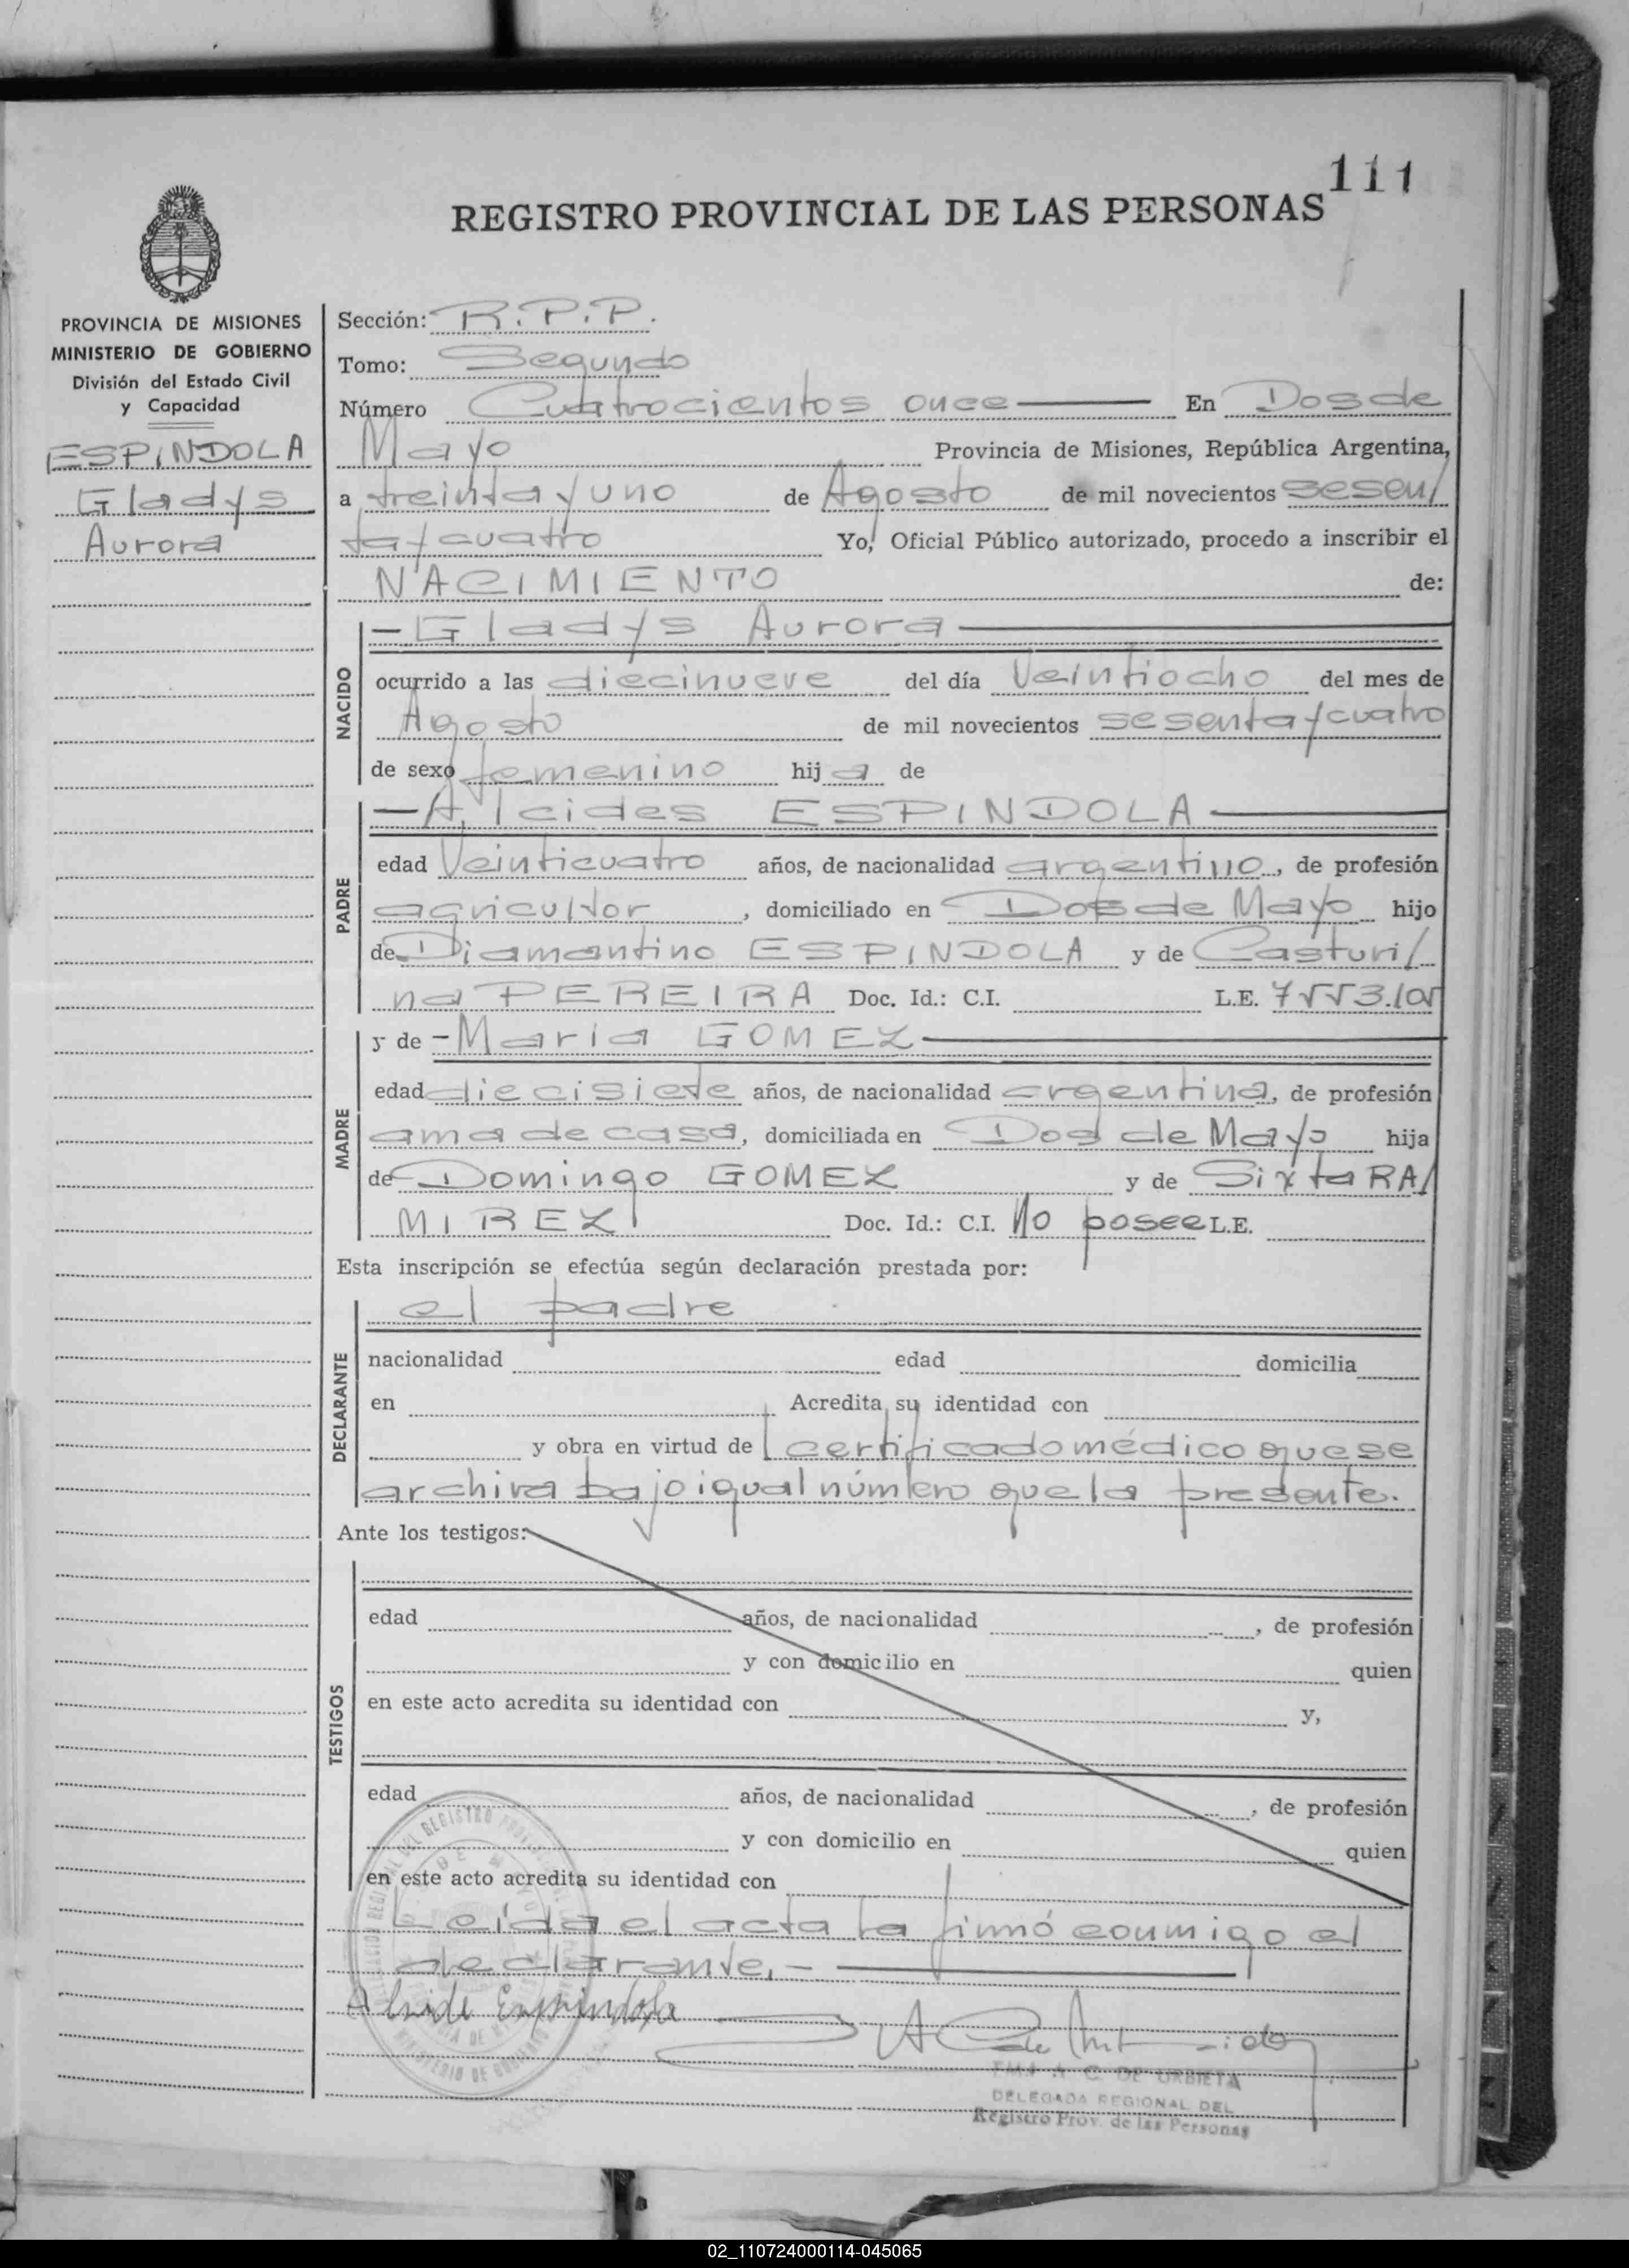 111
REGISTRO PROVINCIAL DE LAS PERSONAS
PROVINCIA DE MISIONES
MINISTERIO DE GOBIERNO
División del Estado Civil
y Capacidad
ESPINDOLA
Gladys
Aurora
Sección: R.P.P.
Tomo: Segundo
Número Cuatrocientos once En Dos de
Mayo Provincia de Misiones, República Argentina,
a treinta y uno de Agosto de mil novecientos sesen/
ta y cuatro Yo, Oficial Público autorizado, procedo a inscribir el
NACIMIENTO de:
NACIDO
- Gladys Aurora
ocurrido a las diecinueve del día Veintiocho del mes de
Agosto de mil novecientos sesenta y cuatro
de sexo femenino hija de
PADRE
- Alcides ESPINDOLA
edad Veinticuatro años, de nacionalidad argentino, de profesión
agricultor, domiciliado en Dos de Mayo hijo
de Diamantino ESPINDOLA y de Casturi/
na PEREIRA Doc. Id.: C.I. L.E. 7553.105
MADRE
y de - Maria GOMEZ
edad diecisiete años, de nacionalidad argentina, de profesión
ama de casa, domiciliada en Dos de Mayo hija
de Domingo GOMEZ y de Sixta RA/
MIREZ Doc. Id.: C.I. No posee L.E.
Esta inscripción se efectúa según declaración prestada por:
DECLARANTE
el padre
nacionalidad edad domicilia
en Acredita su identidad con
y obra en virtud de certificado médico que se
archiva bajo igual número que la presente.
Ante los testigos:
TESTIGOS
edad años, de nacionalidad , de profesión
y con domicilio en quien
en este acto acredita su identidad con y,
edad años, de nacionalidad , de profesión
y con domicilio en quien
en este acto acredita su identidad con
Leída el acta la firmó conmigo el
declarante.-
Alside Espindola
C. DE URBIETA
DELEGADA REGIONAL DEL
Registro Prov. de las Personas
02_110724000114-045065